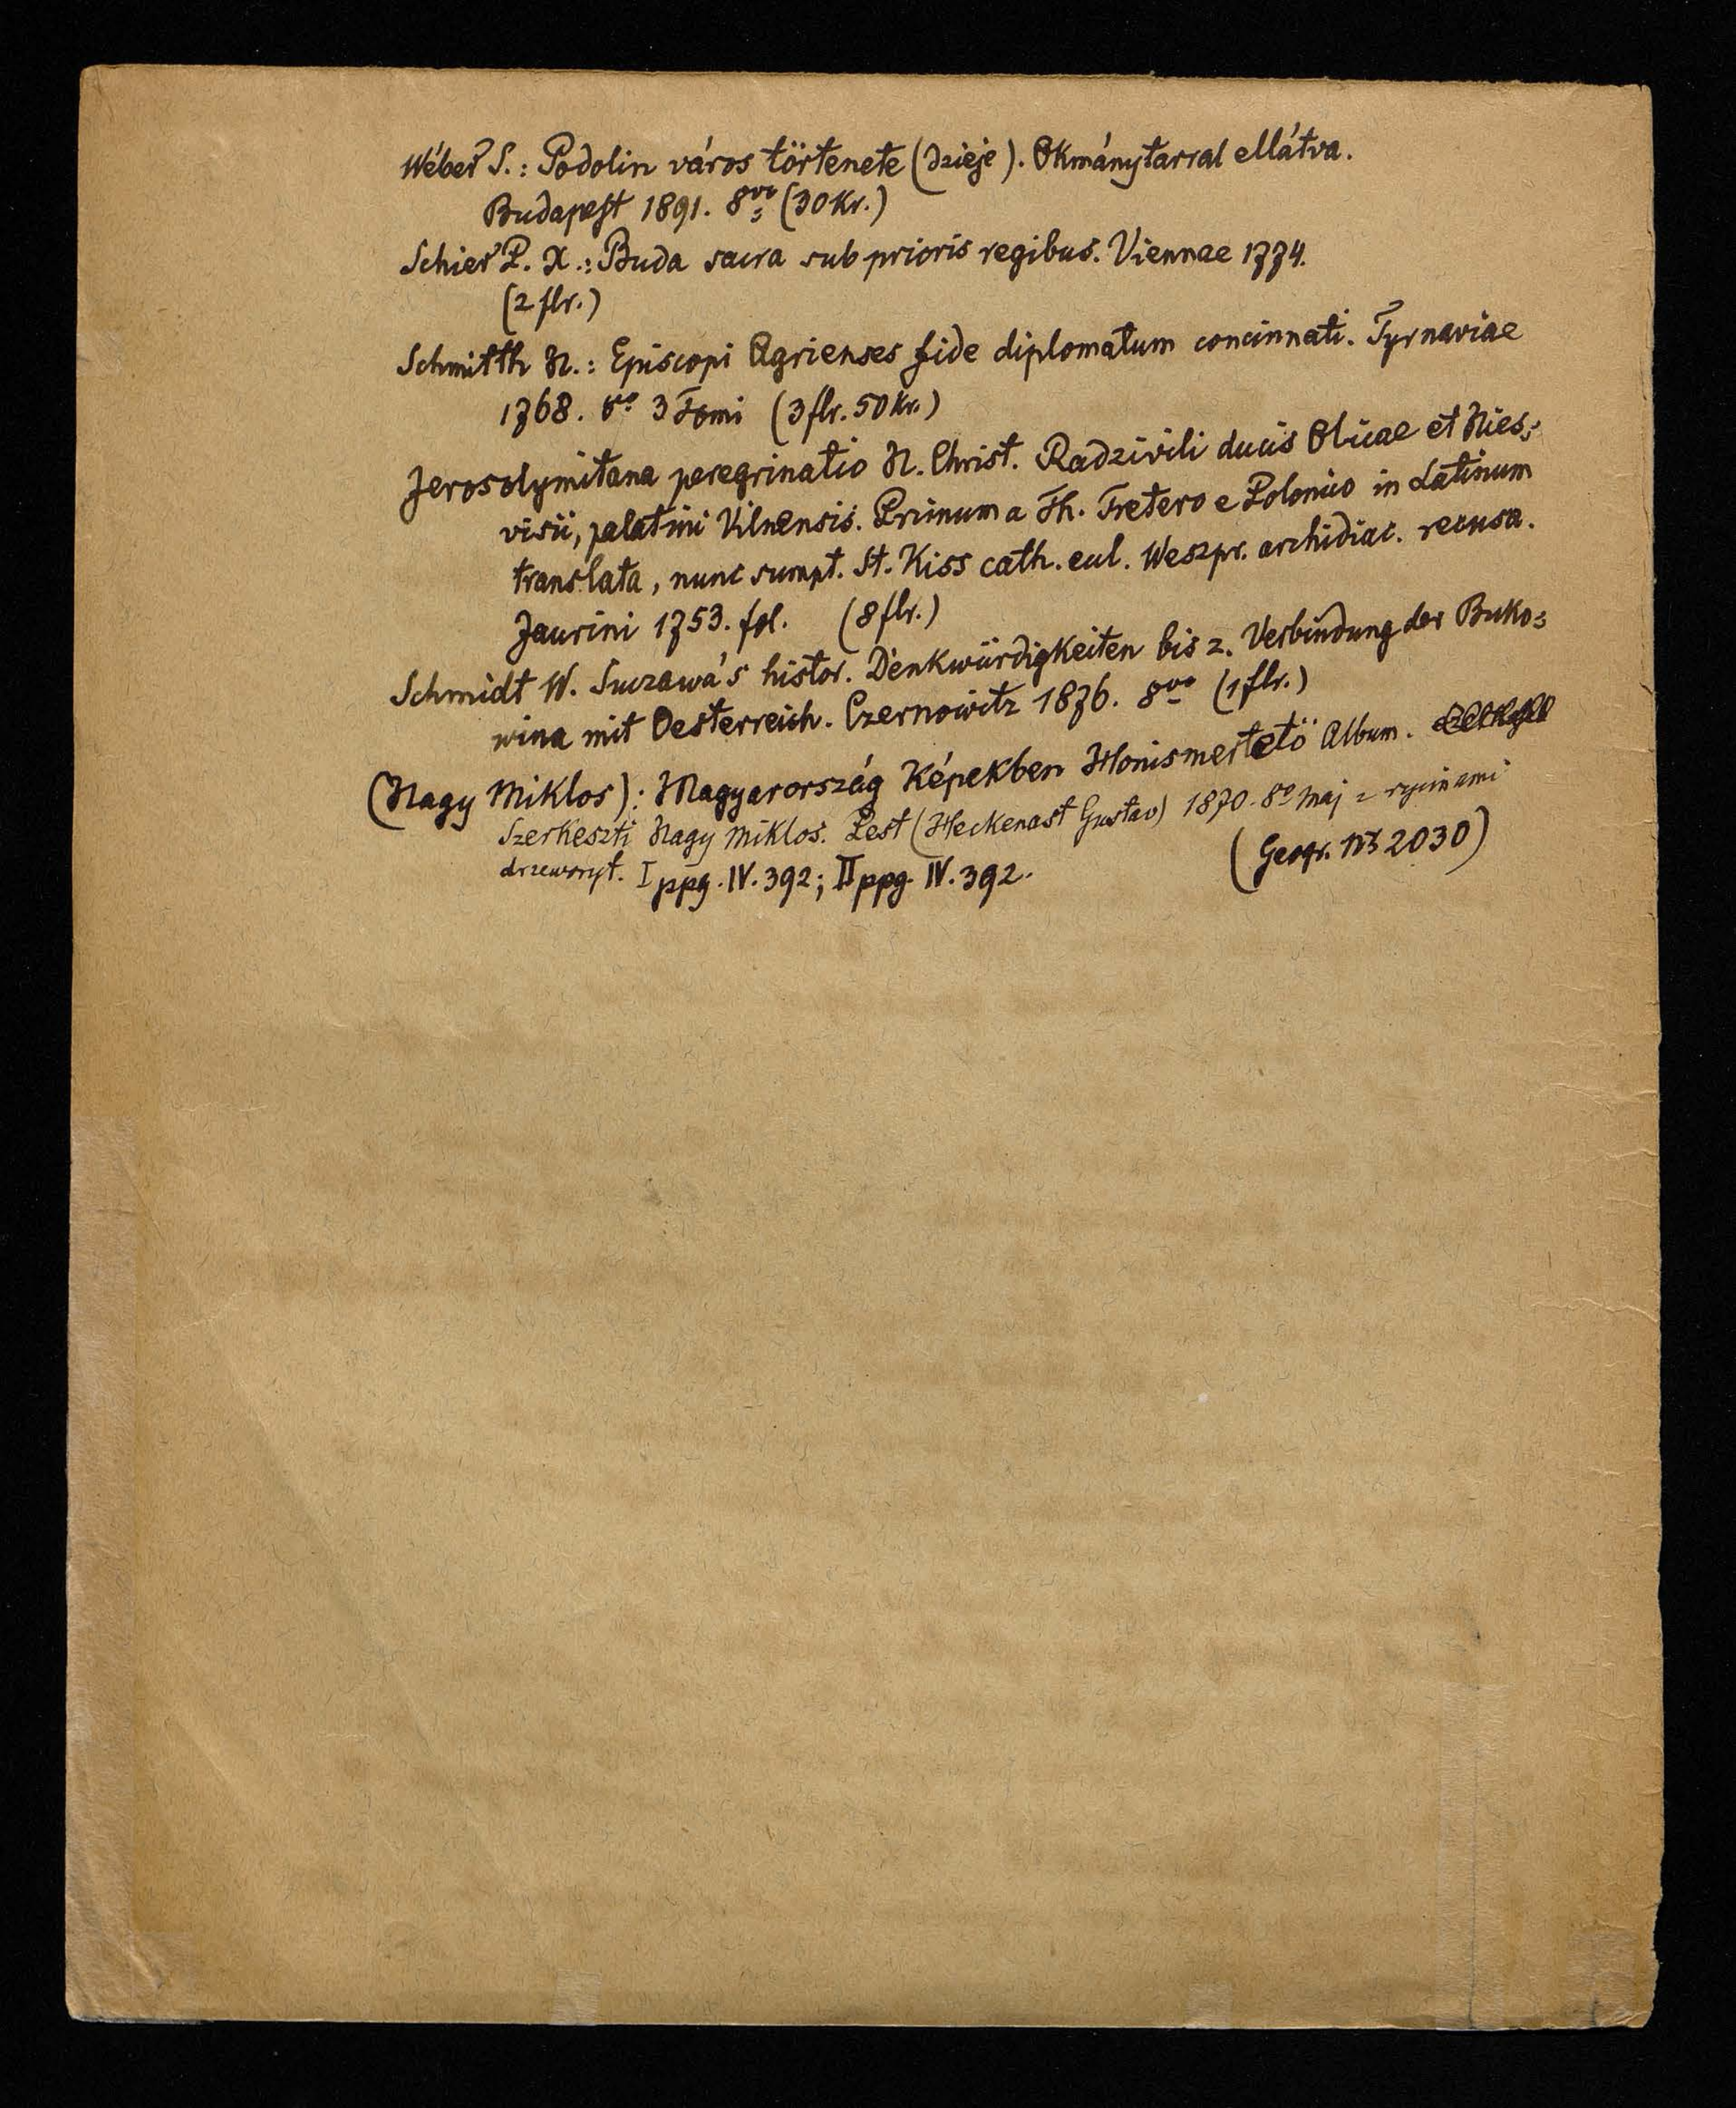 Wéber S.: Podolin város törtenete (dzieje). Okmánytarral ellátva.
Budapest 1891. 8vo (30 Kr.)
Schier P. X.: Buda sacra sub prioris regibus. Viennae 1774.
(2 flr.)
Schmitth N.: Episcopi Agrienses fide diplomatum concinnati. Tyrnaviae
1768. 8o 3 Tomi (3 flr. 50 Kr.)
Jerosolymitana peregrinatio N. Christ. Radzivili ducis Olicae et Nies=
visii, palatini Vilnensis. Primum a Th. Tretero e Polonico in Latinum
translata, nunc sumpt. St. Kiss cath. eul. Weszpr. archidiac. recusa.
Jaurini 1753. fol. (8 flr.)
Schmidt W. Suczawa's histor. Denkwürdigkeiten bis z. Verbindung der Buko=
wina mit Oesterreich. Czernowitz 1876. 8vo (1 flr.)
(Nagy Miklos): Magyarország Képekben Honismertetö Album.
Szerkeszti Nagy Miklos. Pest (Heckenast Gustav) 1870. 8o maj z rycinami
drzeworyt. I ppg. IV. 392; II ppg. IV. 392.
(Geogr. No 2030)